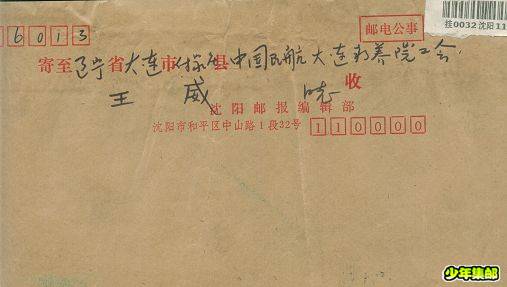 邮电公事
挂0032 沈阳11
6013
寄至辽宁省大连市 县中国民航大连疗养院工会
王 威 晓 收
沈阳邮报编辑部
沈阳市和平区中山路1段32号 110000
少年集邮